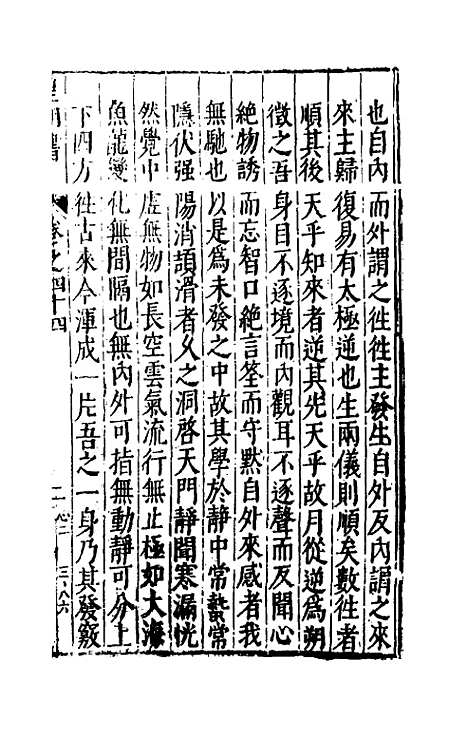 也自內而外謂之徃徃主發生自外反內謂之來
來主歸復易有太極逆也生兩儀則順矣數徃者
順其後天乎知來者逆其先天乎故月從逆爲朔
徵之吾身目不逐境而內觀耳不逐聲而反聞心
絶物誘而忘智口絶言筌而守默自外來感者我
無馳也以是爲未發之中故其學於靜中常蟄常
隱伏强陽消頡滑者久之洞啓天門靜聞寒漏恍
然覺中虛無物如長空雲氣流行無止極如大海
魚龍變化無間隔也無內外可指無動靜可分上
下四方徃古來今渾成一片吾之一身乃其發竅
卷之四十四